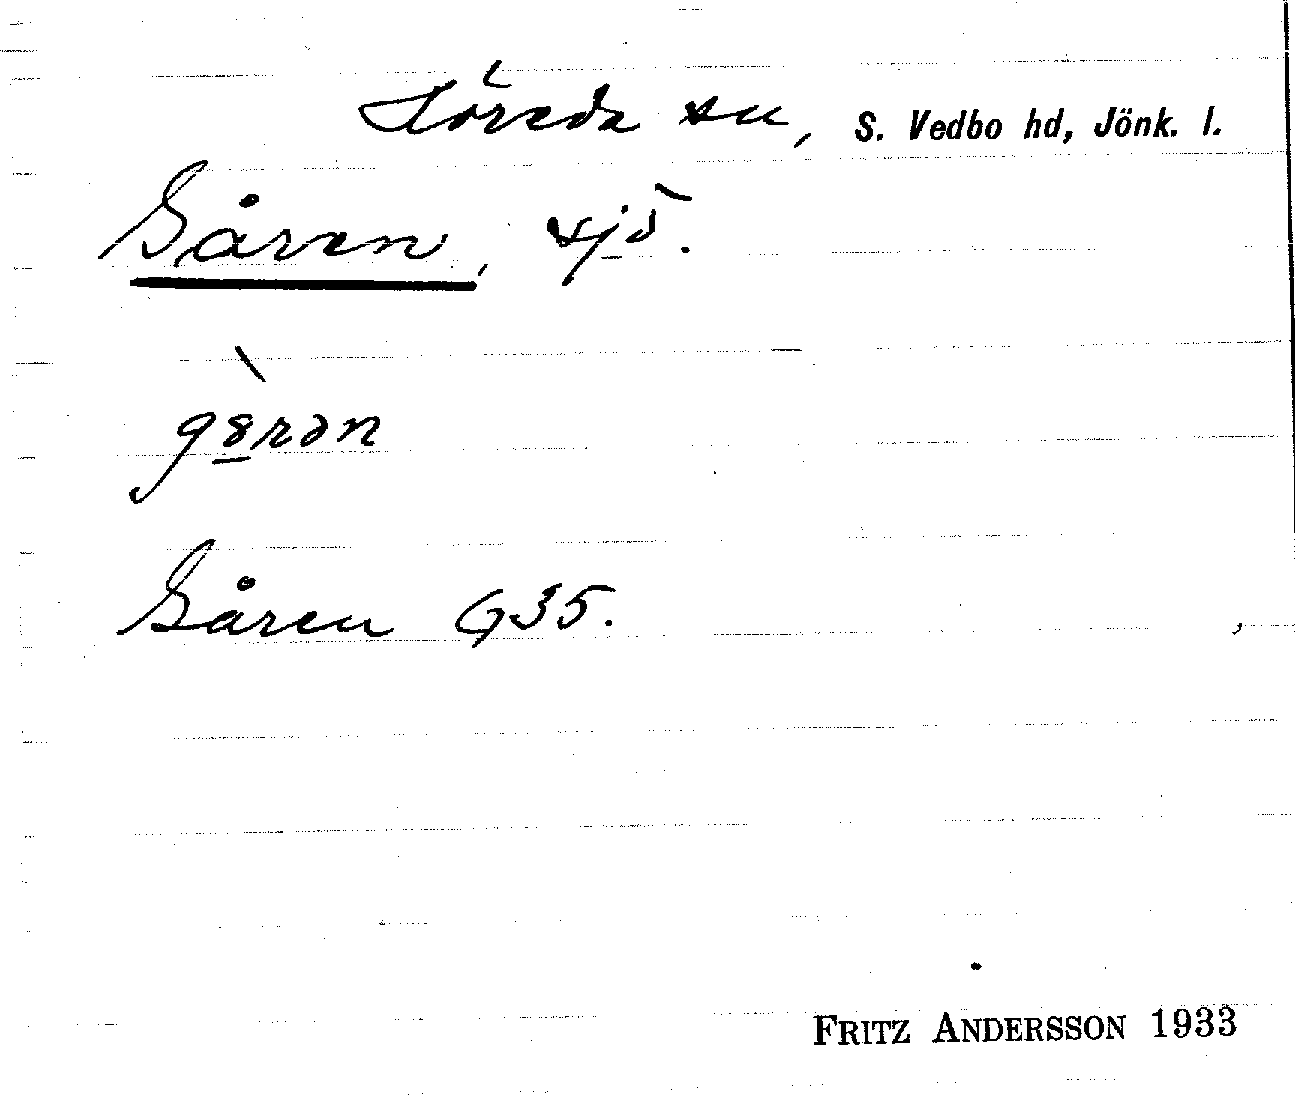 Höreda sn, S. Vedbo hd, Jönk. l.
Gåren, sjö.
g8rən
Gåren G35.
FRITZ ANDERSSON 1933